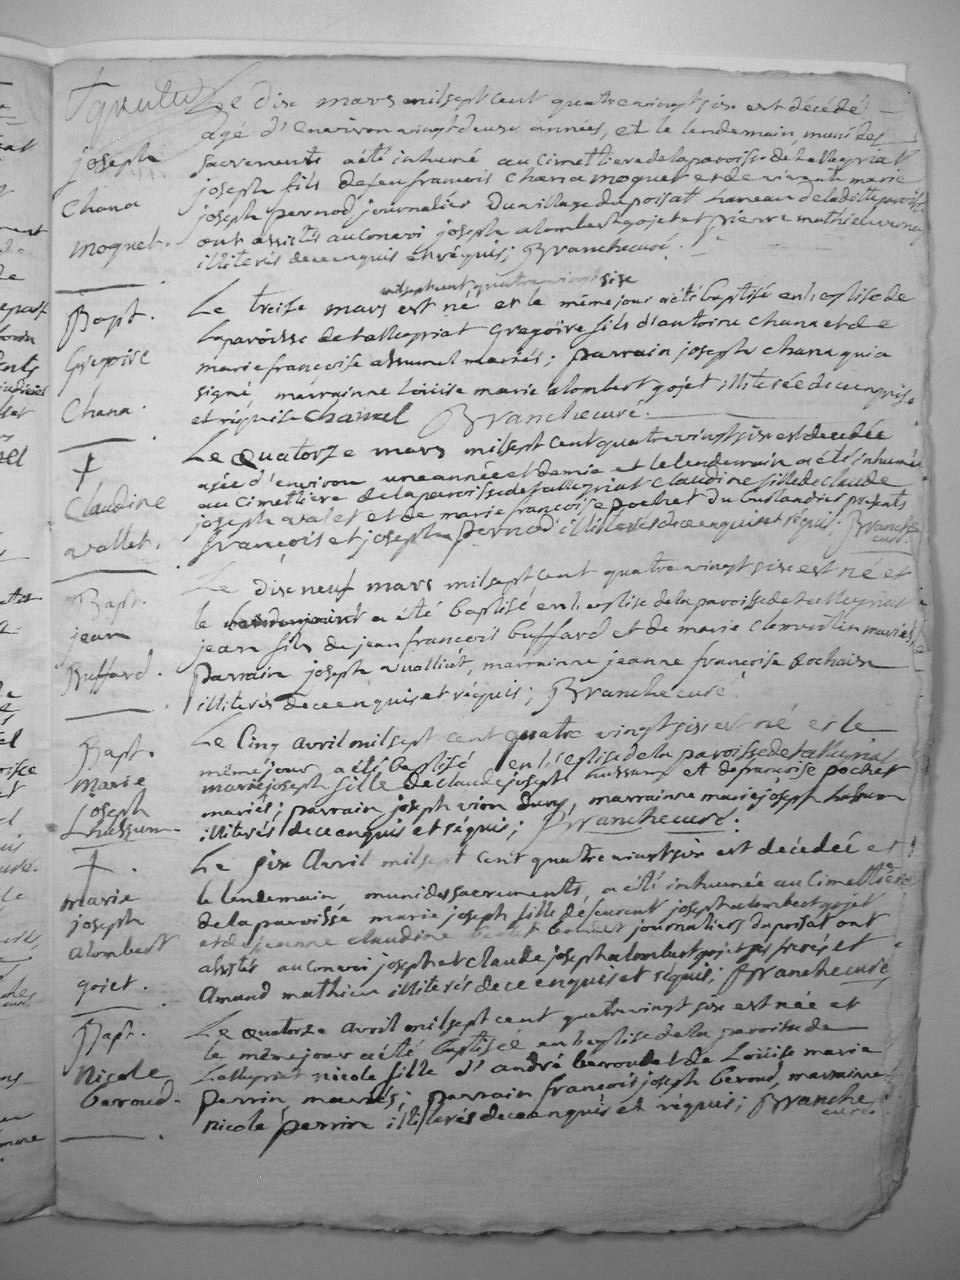 Sepulture
joseph
Chana
moquet.
Le dix mars mil sept cent quatre vingt six est décédé
agé d'environ vingt deux années, et le lendemain muni des
sacrements a été inhumé au cimettiere de la paroisse de
joseph fils de feu francois Chana moquet et de vivante marie
joseph pernod journalier du village du poisat hameau de la ditte paroisse
ont assistés au convoi joseph alombert gojet et pierre mathieu
illiterés de ce enquis et requis; Branche curé.
Bapt.
Gregoire
Chana.
mil sept cent quatre vingt six
Le treise mars est né et le même jour a été baptisé en l'eglise de
la paroisse de tallepriat Gregoire fils d'antoine Chana et de
marie françoise mariés; parrain joseph Chana qui a
signé, marrainne Loüise marie alombert gojet illiterée de ce enquise
et requise Chanal Branche curé.
Claudine
vallet.
Le quatorze mars mil sept cent quatre vingt six est decedée
agée d'environ une année et demie et le lendemain a été inhumée
au cimettiere de la paroisse de tallepriat claudine fille de claude
joseph valet et de marie françoise pochet du presents
françois et joseph pernod illiterés de ce enquis et requis; Branche
curé.
Bapt.
jean
Buffard.
Le dix neuf mars mil sept cent quatre vingt six est né et
le a été baptisé en l'eglise de la paroisse de
jean fils de jean francois buffard et de marie mariés,
parrain joseph vualliat, marrainne jeanne françoise bochain
illiterés de ce enquis et requis; Branche curé.
Bapt.
Marie
Joseph
Lhussum.
Le Cinq avril mil sept cent quatre vingt six est né et le
même jour a été baptisé en l'eglise de la paroisse de
marie joseph fille de claude joseph hussum et de françoise pochet
mariés; parrain joseph vion dury, marrainne marie joseph
illiterés de ce enquis et requis; Branche curé.
marie
joseph
alombert
gojet.
Le six Avril mil sept cent quatre vingt six est décédée et
le lendemain muni des sacrements, a été inhumée au cimettiere
de la paroisse marie joseph fille de joseph alombert gojet
et de jeanne claudine journaliers du poisat ont
assistés au convoi joseph et claude joseph alombert gojet ses freres et
Amand mathieu illiterés de ce enquis et requis; Branche curé,
Bapt.
Nicole
beroud.
Le quatorze avril mil sept cent quatre vingt six est née et
le même jour a été baptisée en l'eglise de la paroisse de
tallepriat nicole fille d'andré beroud et de Loüise marie
perrin mariés; parrain françois joseph beroud, marrainne
nicole perrin illiterés de ce enquis et requis; Branche
curé.